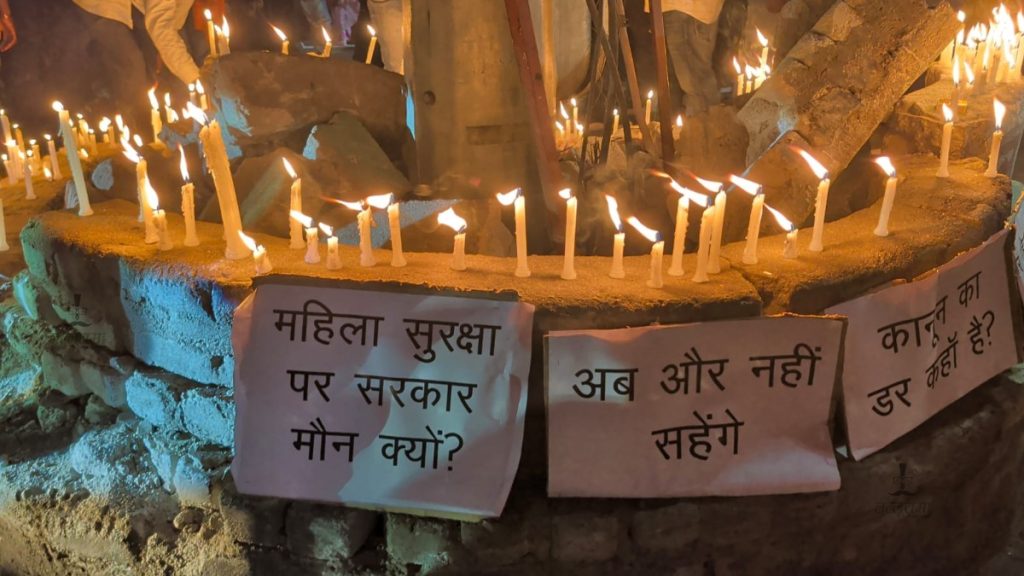 महिला सुरक्षा
पर सरकार
मौन क्यों?
अब और नहीं
सहेंगे
कानून का
डर कहाँ है?